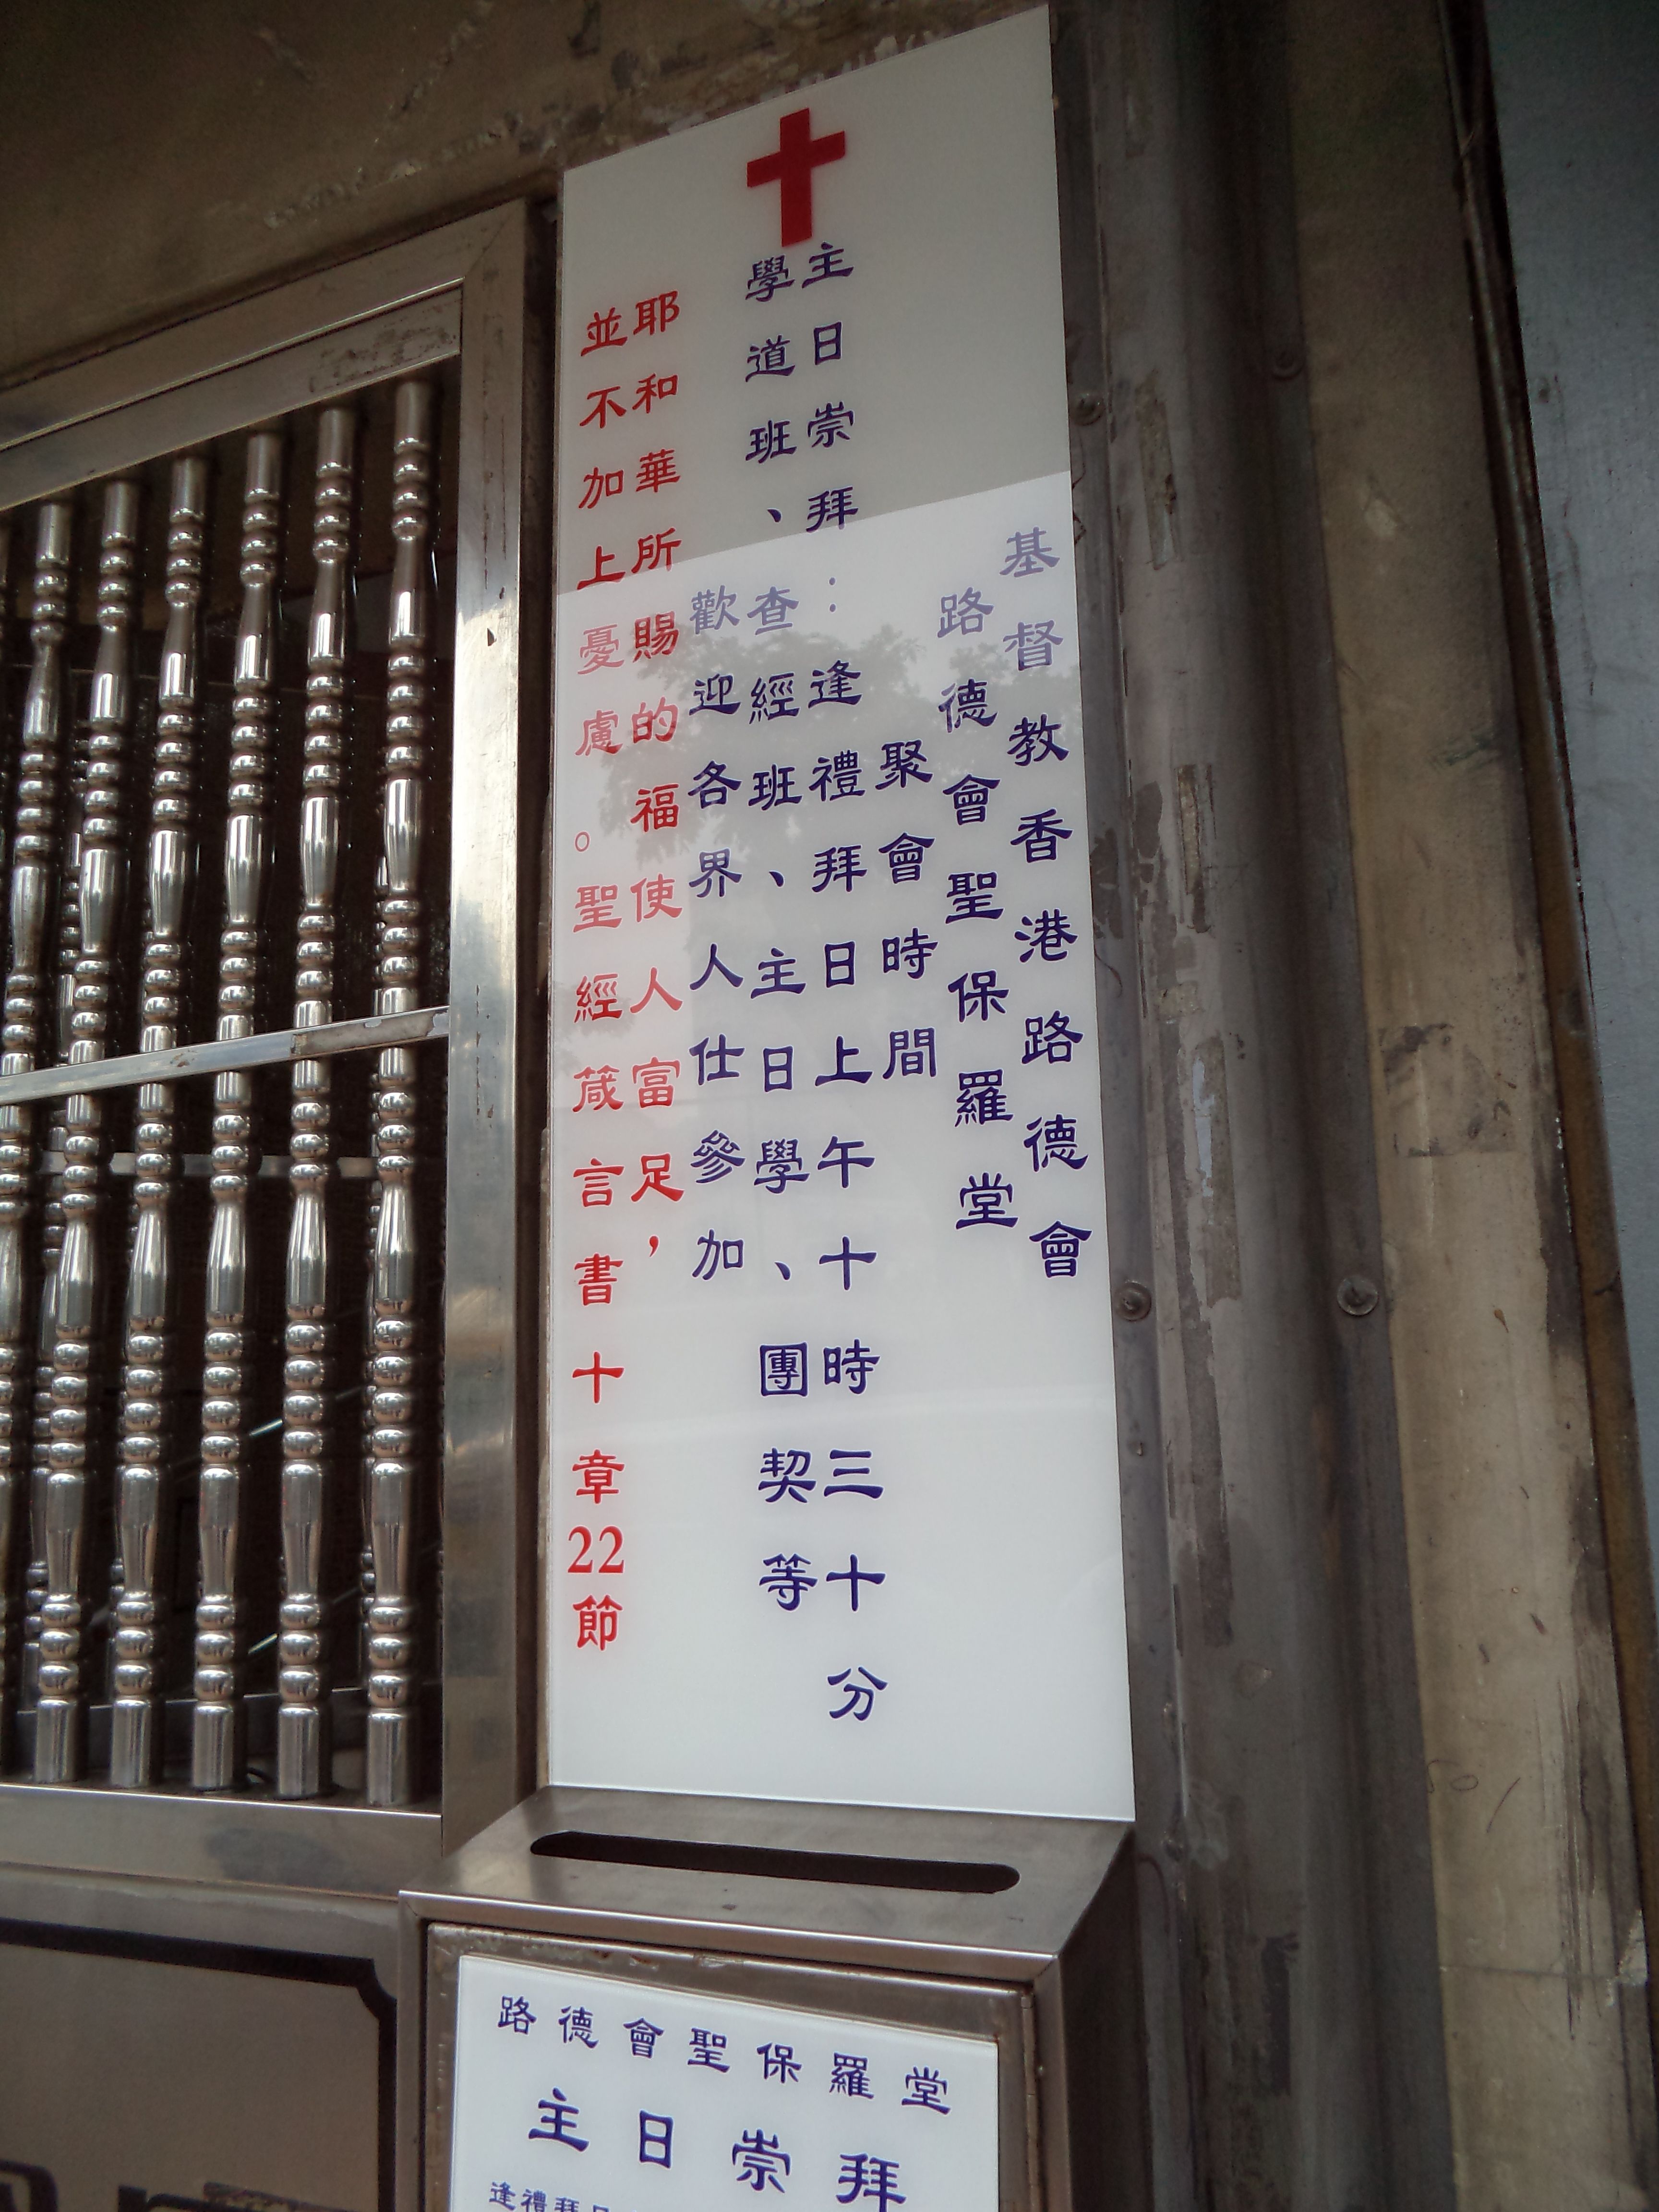 基督教香港路德會
路德會聖保羅堂
聚會時間
主日崇拜：逢禮拜日上午十時三十分
學道班、查經班、主日學、團契等
歡迎各界人仕參加
耶和華所賜的福使人富足，
並不加上憂慮。聖經箴言書十章22節
路德會聖保羅堂
主日崇拜
逢禮拜日